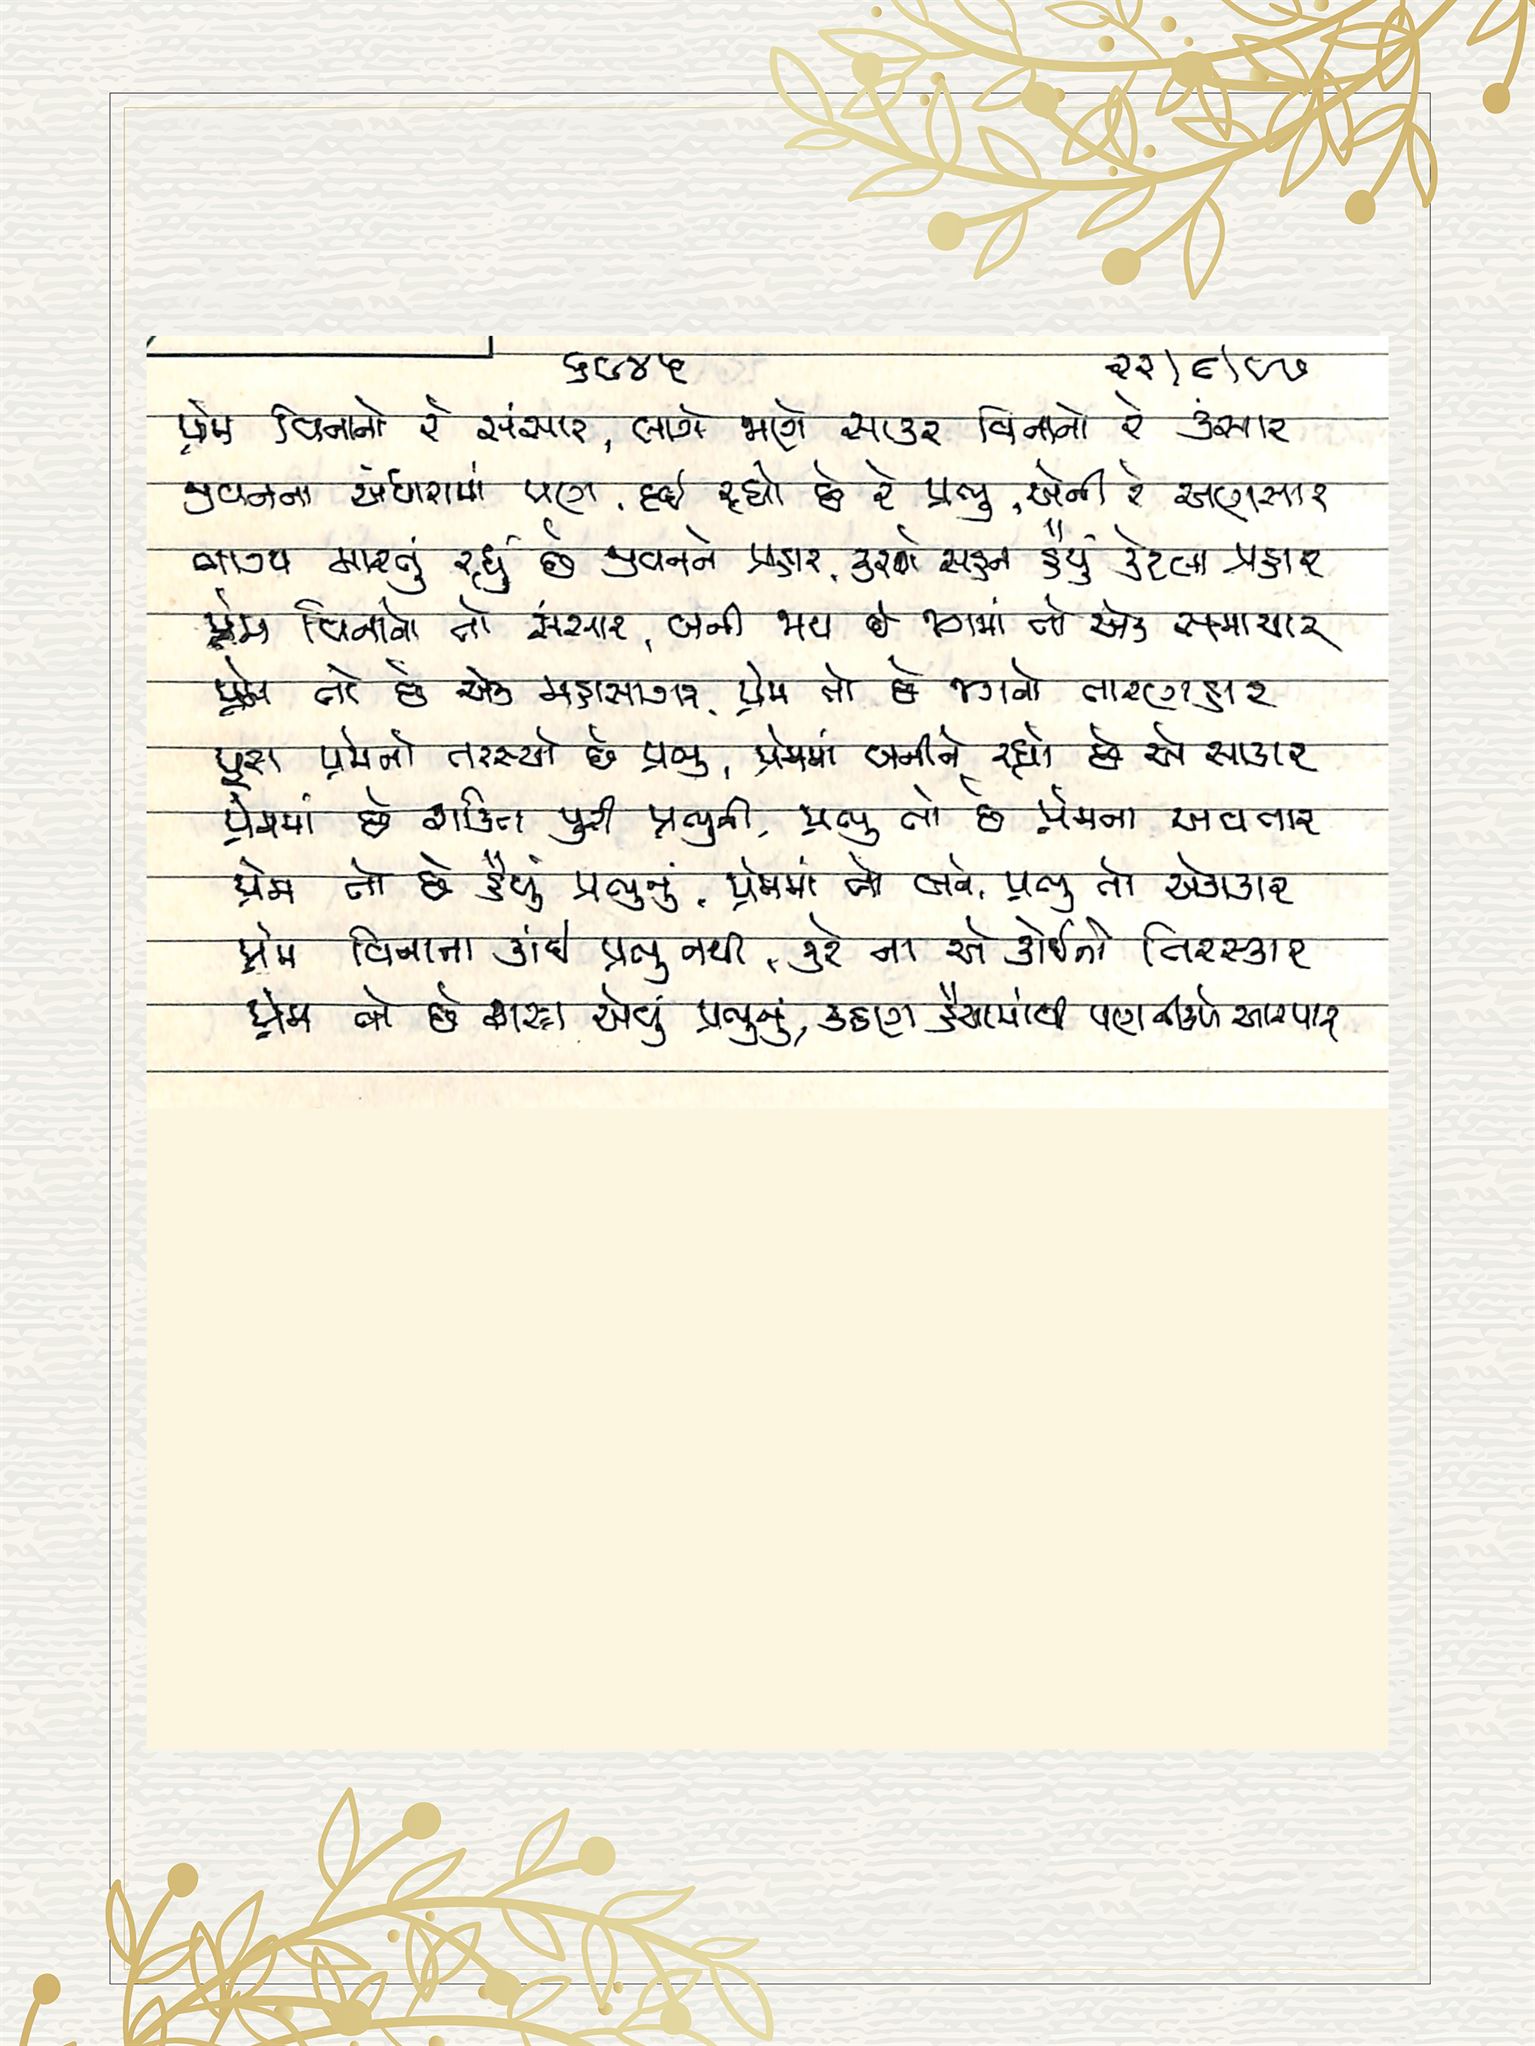 ૬૯૪૫ ૨૨/૯/૯૭
પ્રેમ વિનાનો રે સંસાર, લાગે જાણે સાકર વિનાનો રે કંસાર
જીવનના અંધારામાં પણ, દઈ રહ્યો છે રે પ્રભુ, એની રે અણસાર
ભાગ્ય મારતું રહ્યું છે જીવનને પ્રહાર, કરશે સહન હૈયું કેટલા પ્રહાર
પ્રેમ વિનાનો તો સંસાર, બની જાય છે જગમાં તો એક સમાચાર
પ્રેમ તો છે એક મહાસાગર, પ્રેમ તો છે જગનો તારણહાર
પ્રેમનો તરસ્યો છે પ્રભુ, પ્રેમમાં બનીને રહ્યો છે એ સાકાર
પ્રેમમાં છે શક્તિ પુરી પ્રભુની, પ્રભુ તો છે પ્રેમના અવતાર
પ્રેમ તો છે હૈયું પ્રભુનું, પ્રેમમાં તો બને, પ્રભુ તો એકાકાર
પ્રેમ વિનાના કાંઈ પ્રભુ નથી, કરે ના એ કોઈનો તિરસ્કાર
પ્રેમ તો છે શસ્ત્ર એવું પ્રભુનું, કઠણ હૈયામાંથી પણ નીકળે આરપાર